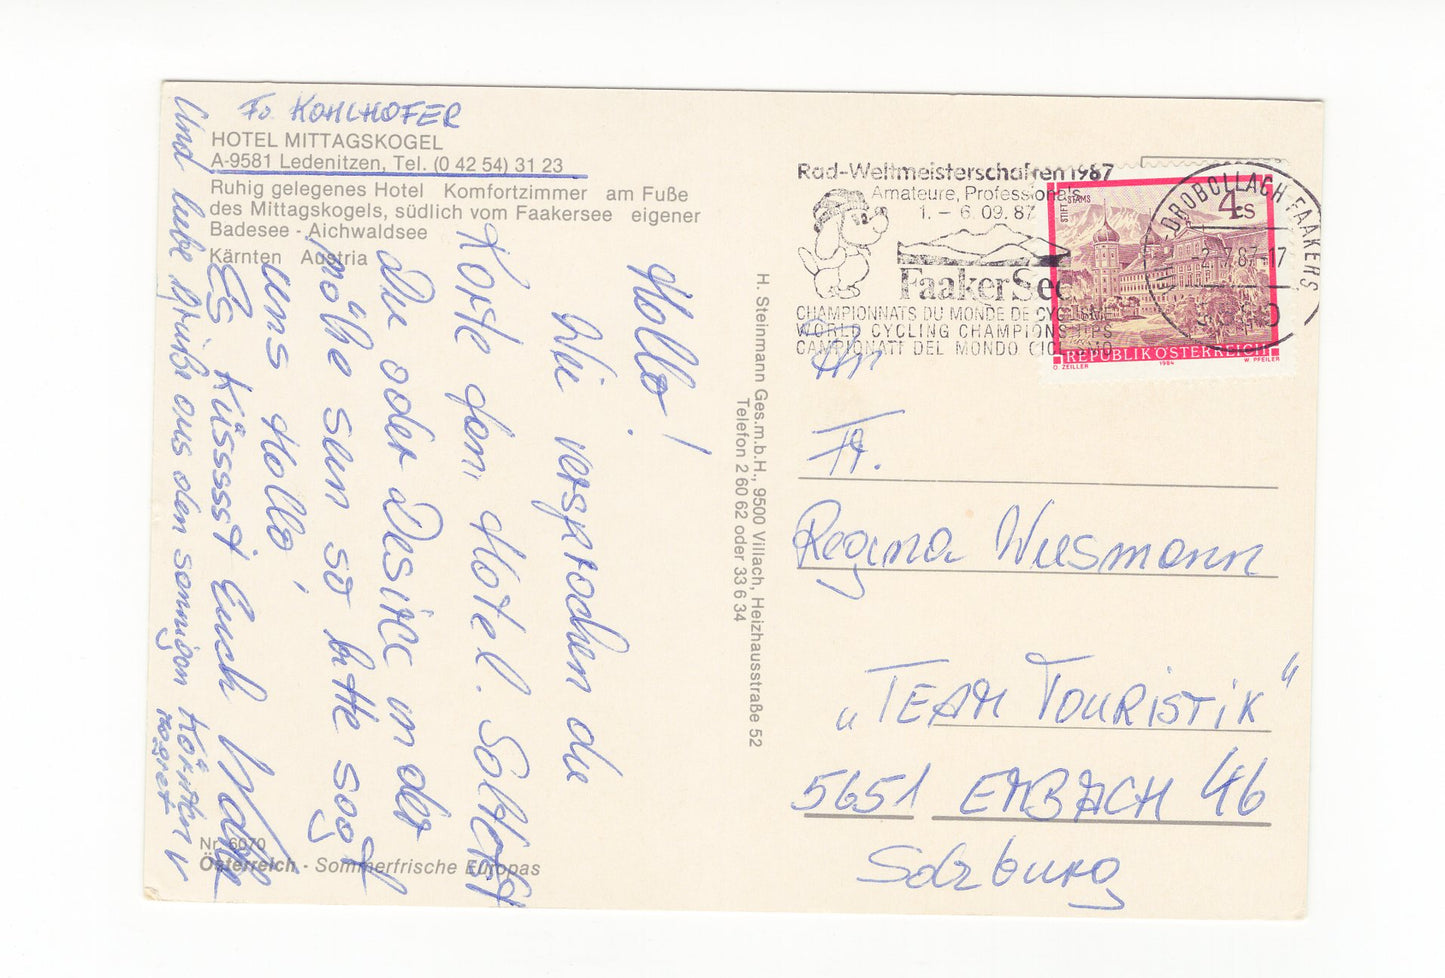 Fa. KOHLHOFER
HOTEL MITTAGSKOGEL
A-9581 Ledenitzen, Tel. (0 42 54) 31 23
Ruhig gelegenes Hotel Komfortzimmer am Fuße
des Mittagskogels, südlich vom Faakersee eigener
Badesee - Aichwaldsee
Kärnten Austria
Hallo!
Wie versprochen die
Karte vom Hotel. Solltest
Du oder Desiree in der
Nähe sein so bitte sagt
uns Hallo!
Es Küsssst Euch
Und liebe Grüße aus dem sonnigen Kärnten v.
Nr. 6070
Österreich - Sommerfrische Europas
H. Steinmann Ges.m.b.H., 9500 Villach, Heizhausstraße 52
Telefon 2 60 62 oder 33 6 34
Rad-Weltmeisterschaften 1987
Amateure, Professionals
1. - 6. 09. 87
Faaker See
CHAMPIONNATS DU MONDE DE CYCLISME
WORLD CYCLING CHAMPIONSHIPS
CAMPIONATI DEL MONDO CICLISMO
DROBOLLACH FAAKERS
-2.-7.87-17
STIFT STAMS
4 S
REPUBLIK ÖSTERREICH
O. ZEILLER 1984 W. PFEILER
An
Fr.
Regina Wiesmann
„TEAM TOURISTIK"
5651 EMBACH 46
Salzburg